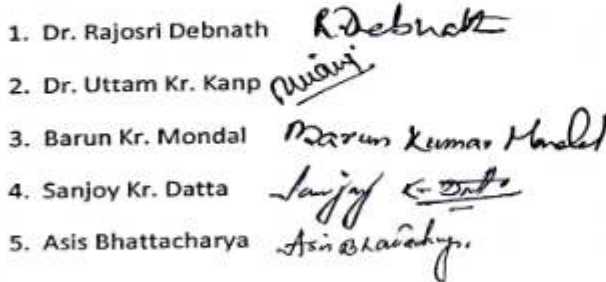 1. Dr. Rajosri Debnath R. Debnath
2. Dr. Uttam Kr. Kanp
3. Barun Kr. Mondal Barun Kumar Mondal
4. Sanjoy Kr. Datta Sanjoy Kr Datta
5. Asis Bhattacharya Asis Bhattacharya